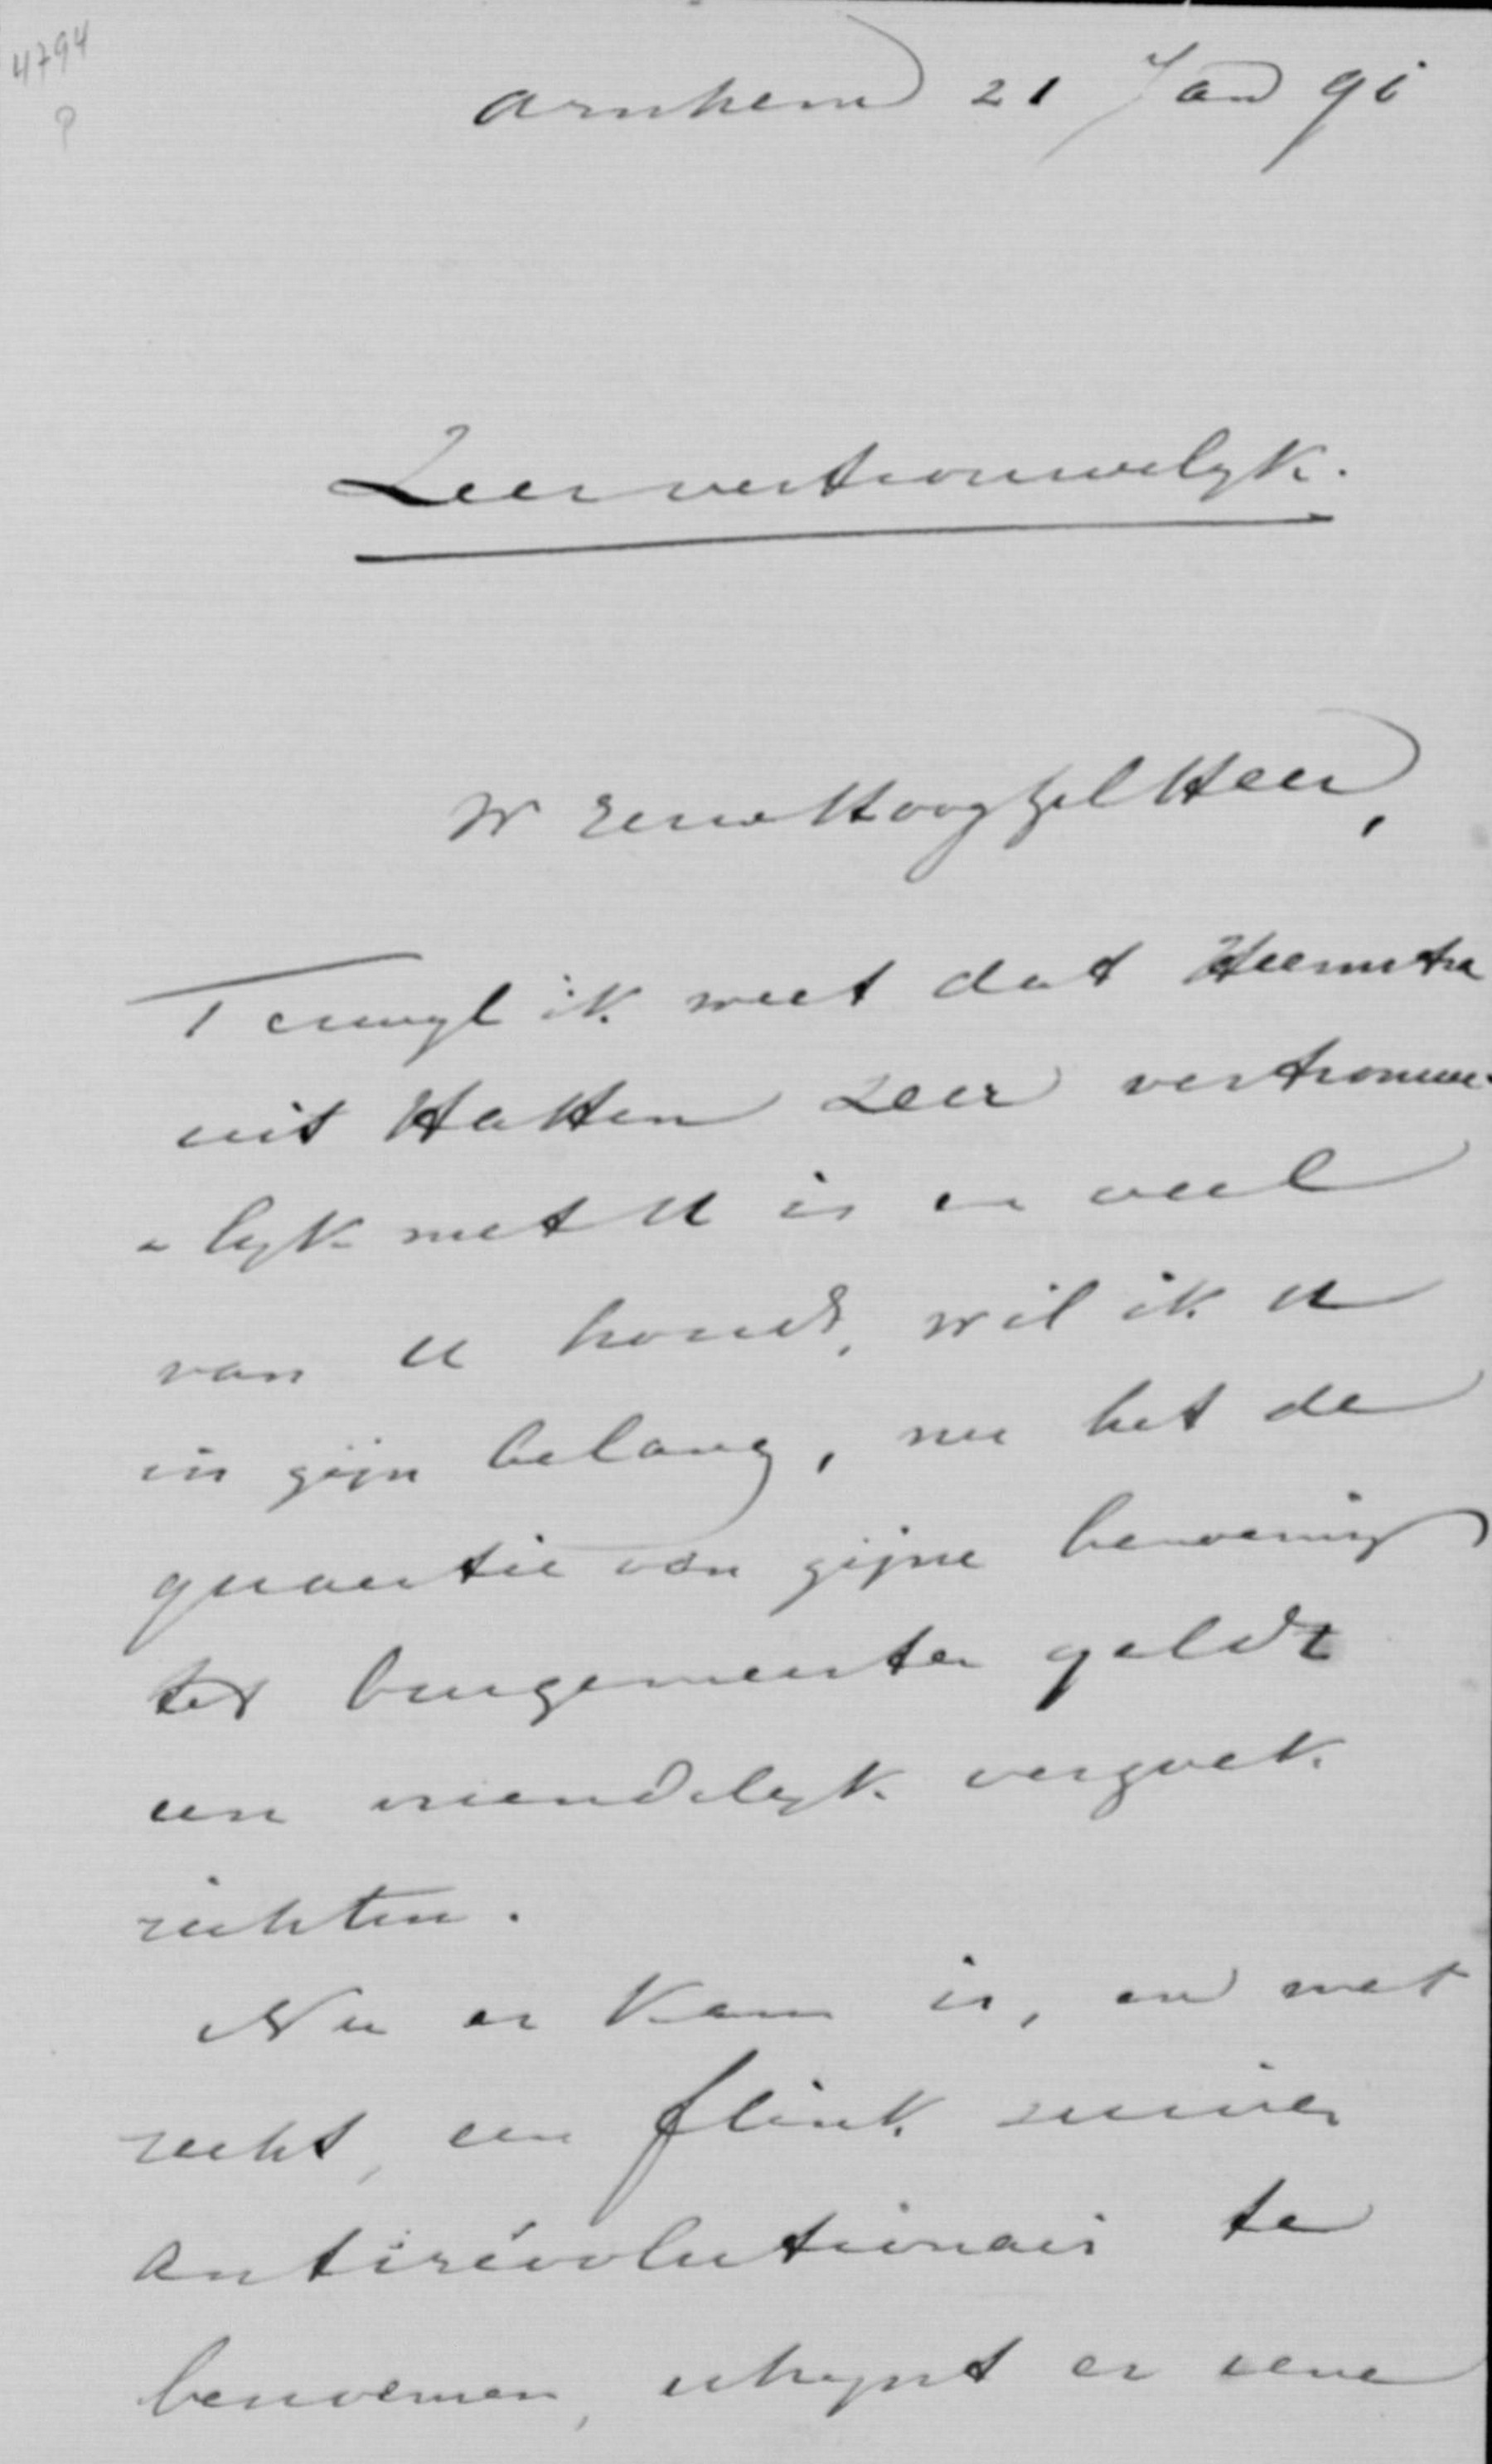 4794
Arnhem 21 Jan 91
Zeer vertrouwelyk.
WelEerw HoogGel Heer,
Terwyl ik weet dat Heemstra
uit Hattem zeer vertrouwe-
-lyk met U is en veel
van U houdt, wil ik U
in zijn belang, nu het de
quaestie van zijne benoeming
tot burgemeester geldt
een vriendelyk verzoek
richten.
Nu er kans is, en met
recht, een flink zuiver
antirévolutionair te
benoemen, schynt er eene